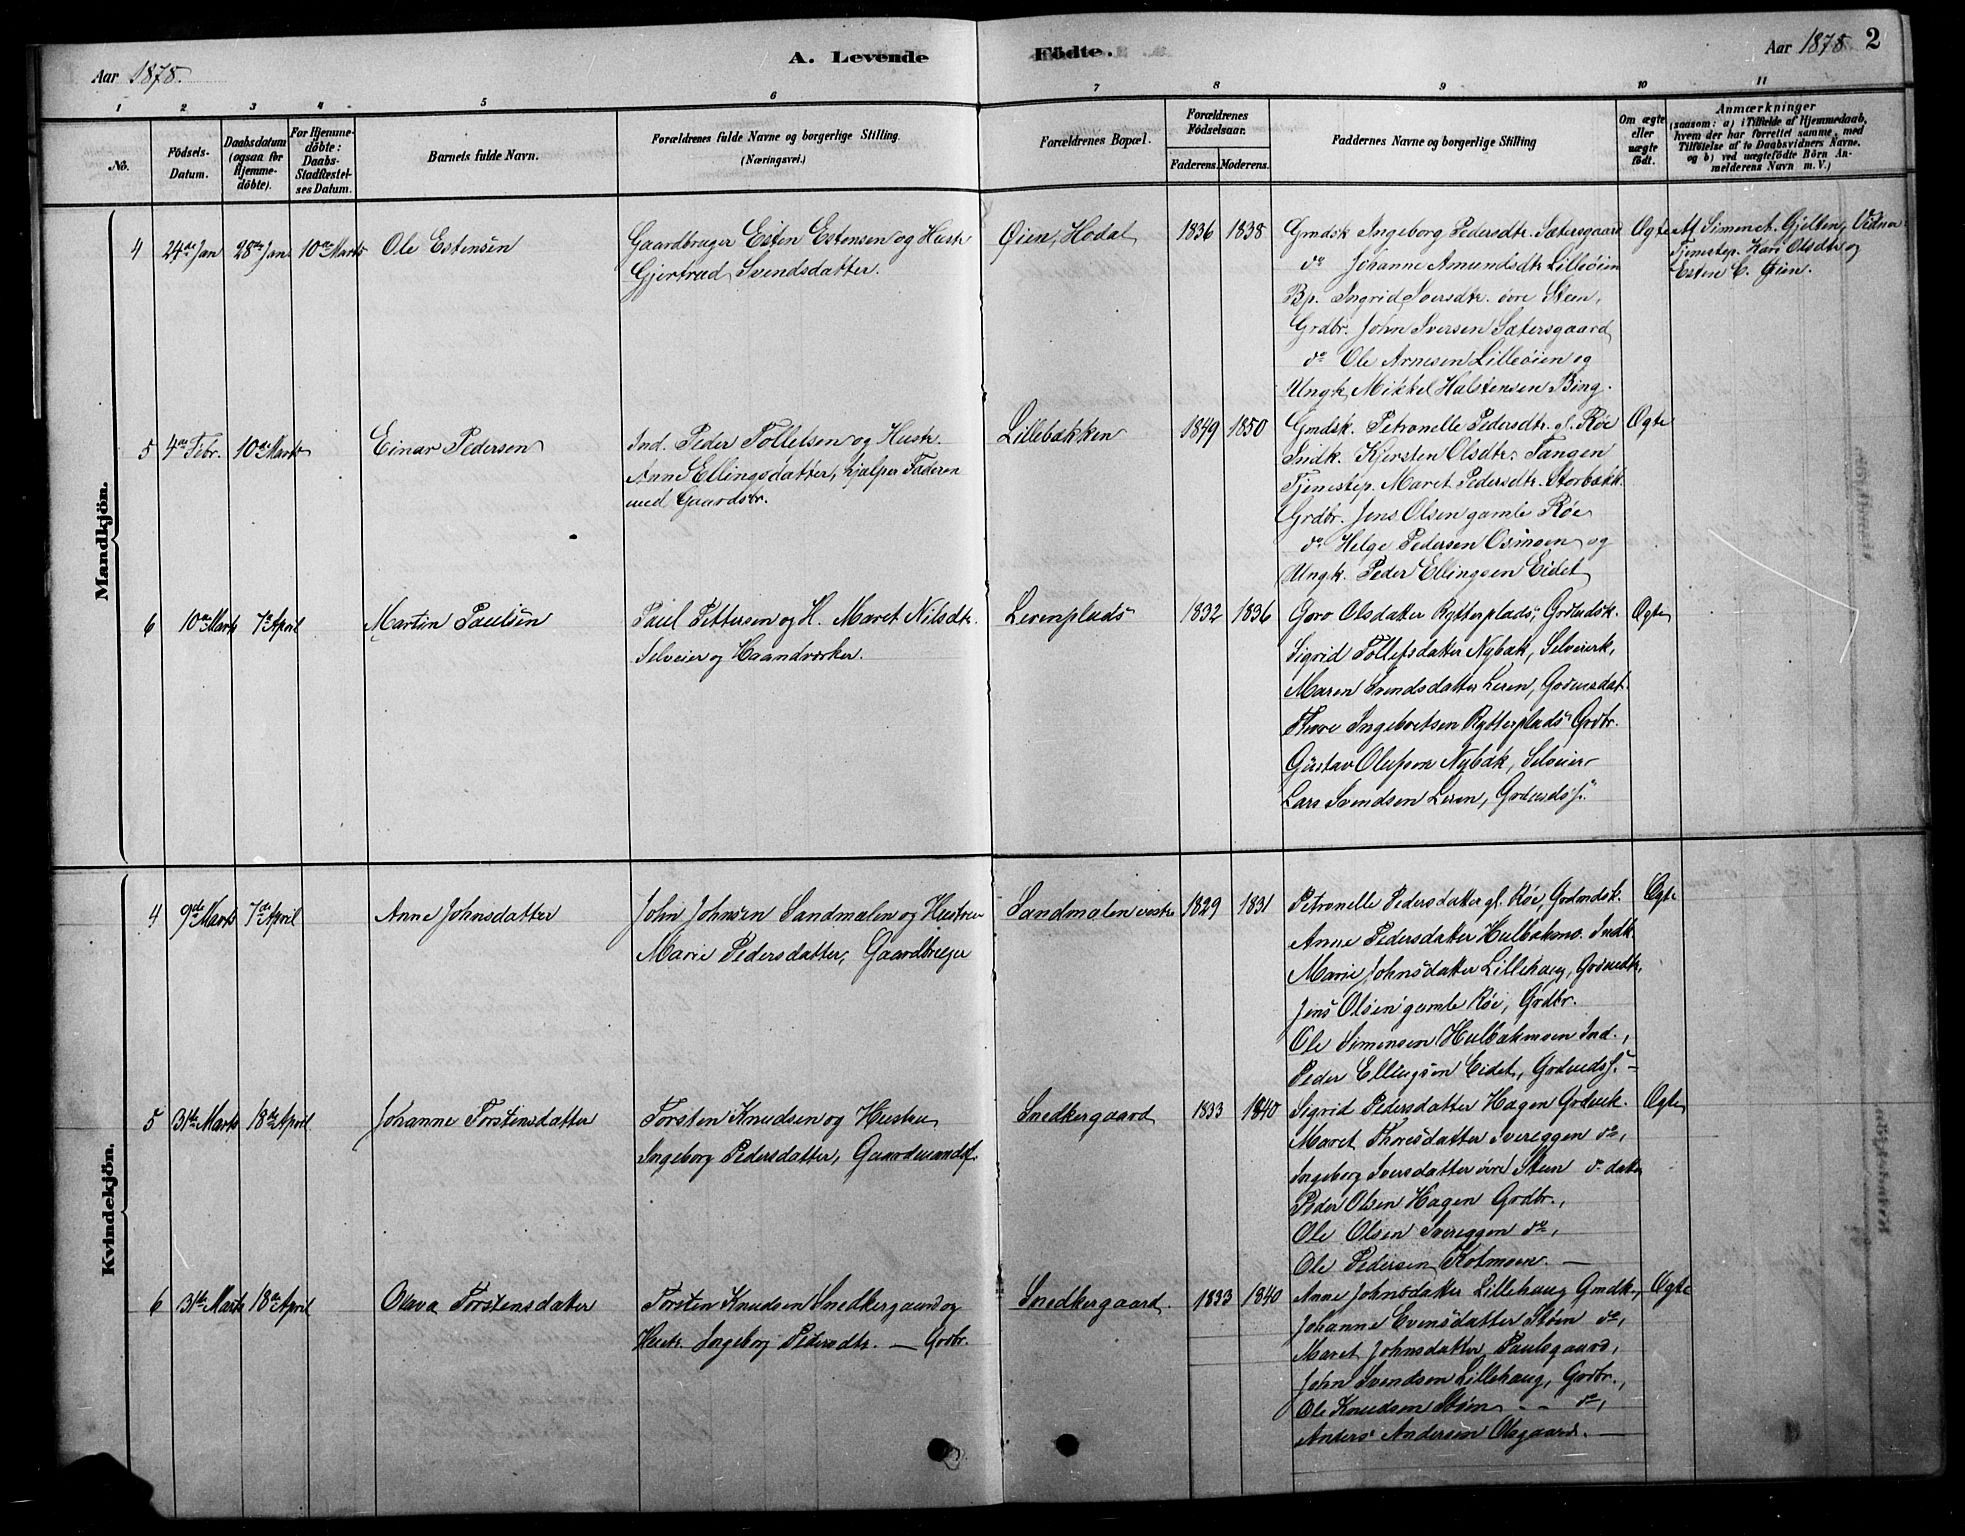 Aar 1878.
A. Levende
Födte.
Aar 1878. 2
1 2 3 4 5 6 7 8 9 10 11
No.
Födsels-Datum.
Daabsdatum (ogsaa for Hjemme-döbte).
For Hjemme-döbte: Daabs-Stadfæstel-ses Datum.
Barnets fulde Navn.
Forældrenes fulde Navne og borgerlige Stilling.
(Næringsvei.)
Forældrenes Bopæl.
Forældrenes Födselsaar.
Faderens. Moderens.
Faddernes Navne og borgerlige Stilling
Om ægte eller uægte födt.
Anmærkninger
(saasom: a) i Tilfælde af Hjemmedaab,
hvem der har forrettet samme, med
Tilföielse af to Daabsvidners Navne,
og b) ved uægtefödte Börn An-
melderens Navn m. V.)
Mandkjön.
4 24de Jan 28de Jan 10de Marts Ole Estensen
Gaardbruger Esten Estensen og Hustr.
Gjertrud Svendsdatter.
Øien, Hodal 1836 1838
Gmdsk Ingeborg Pedersdtr. Sætersgaard
do Johanne Amundsdtr Lilleöien
Bp. Ingrid Iversdtr. övre Steen,
Grdbr. John Iversen Sætersgaard
do Ole Arnesen Lilleöien og
Ungk. Mikkel Halstensen Bing.
Ægte
Af Simen Gjelten, Vidner
Tjenestep. Kari Olsdtr og
Esten E. Øien.
5 4de Febr. 10de Marts Einar Pedersen
Ind. Peder Tollefsen og Hustr.
Anne Ellingsdatter, hjælper Faderen
med Gaardsbr.
Lillebakken 1849 1850
Gmdsk. Petronelle Pedersdtr. gl. Röe
Indk. Kjersten Olsdtr. Tangen
Tjenestep. Maret Pedersdtr. Storbakk.
Grdbr. Jens Olsen gamle Röe
do Helge Pedersen Osmoen og
Ungk. Peder Ellingsen Eidet
Ægte
6 10de Marts 7de April Martin Paulsen
Paul Pettersen og H. Maret Nilsdtr.
Selveier og Haandværker.
Lerenplads 1832 1836
Goro Olsdatter Rytterplads, Grdmdsk.
Sigrid Tollefsdatter Nybak, Selveierk,
Maren Svendsdatter Leren, Grdmsdat.
Thore Ingebretsen Rytterplads Grdbr.
Gustav Olufsen Nybak, Selveier
Lars Svendsen Leren, Grdmds f.
Ægte
Kvindekjön.
4 9de Marts 7de April Anne Johnsdatter
John Johnsen Sandmælen og Hustru
Marie Pedersdatter, Gaardbruger
Sandmælen vestre 1829 1831
Petronelle Pedersdatter gl. Röe, Grdmdsk.
Anne Pedersdatter Hulbakmo. Indk.
Marie Johnsdatter Lillehaug, Grdmdk,
Jens Olsen gamle Röe, Grdbr.
Ole Simensen Hulbakmoen Ind.,
Peder Ellingsen Eidet, Grdmds f.
Ægte
5 31te Marts 18de April Johanne Torstensdatter
Torsten Knudsen og Hustru
Ingeborg Pedersdatter, Gaardmandsf.
Snedkergaard 1833 1840
Sigrid Pedersdatter Hagen Grdmk.
Maret Thoresdatter Svereggen do,
Ingeborg Iversdatter övre Steen do datter
Peder Olsen Hagen Grdbr.,
Ole Olsen Svereggen do,
Ole Pedersen Kotmoen. —
Ægte
6 31te Marts 18de April Olava Torstensdatter
Torsten Knudsen Snedkergaard og
Hustr. Ingeborg Pedersdtr. — Grdbr.
Snedkergaard. 1833 1840
Anne Johnsdatter Lillehaug Gmdk.,
Johanne Evensdatter Stöen do,
Maret Johnsdatter Paulsgaard,
John Svendsen Lillehaug, Grdbr.,
Ole Knudsen Stöen — do,
Anders Andersen Olsgaard. —
Ægte